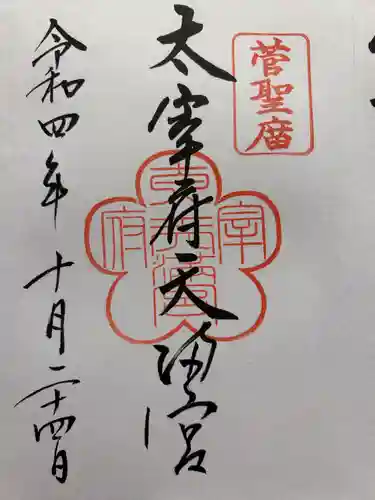 菅聖庿
太宰府天満宮
令和四年十月二十四日